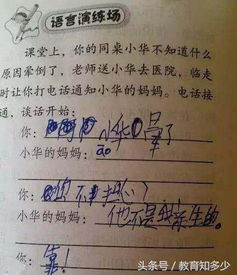 语言演练场
课堂上，你的同桌小华不知道什么
原因晕倒了，老师送小华去医院，临走
时让你打电话通知小华的妈妈。电话接
通，谈话开始：
你：小华晕了
小华的妈妈：āo
你：你不担心？
小华的妈妈：他不是我亲生的。
你：靠！
头条号／教育知多少